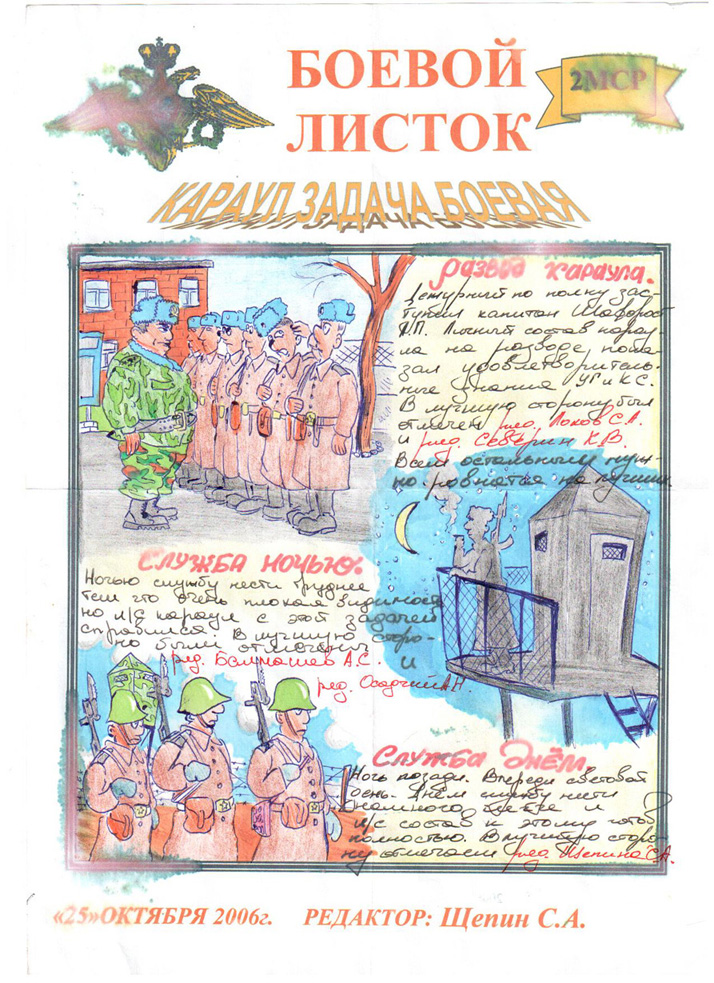 БОЕВОЙ
ЛИСТОК
2МСР
КАРАУЛ ЗАДАЧА БОЕВАЯ
Развод караула.
Дежурный по полку зас-
тупил капитан Шафорост
И.П. Личный состав карау-
ла на разводе пока-
зал удовлетворитель-
ные знания УГ и КС.
В лучшую сторону был
отмечен ряд. Попов С.А.
и ряд. Северин К.В.
Всем остальным нуж-
но ровнятся на лучших
Служба ночью.
Ночью службу нести труднее
тем что очень плохая видимость
но л/с караул с этой задачей
справился. В лучшую сторо-
но были отмечены
ряд. Балмашев А.С.
и
ряд. Осадчий А.Н.
Служба днём.
Ночь позади. Впереди световой
день. Днём службу нести
немного легче и
л/с состав к этому готов
полностью. В лучшую сторо-
ну отмечаем ряд. Щепина С.А.
«25»ОКТЯБРЯ 2006г. РЕДАКТОР: Щепин С.А.